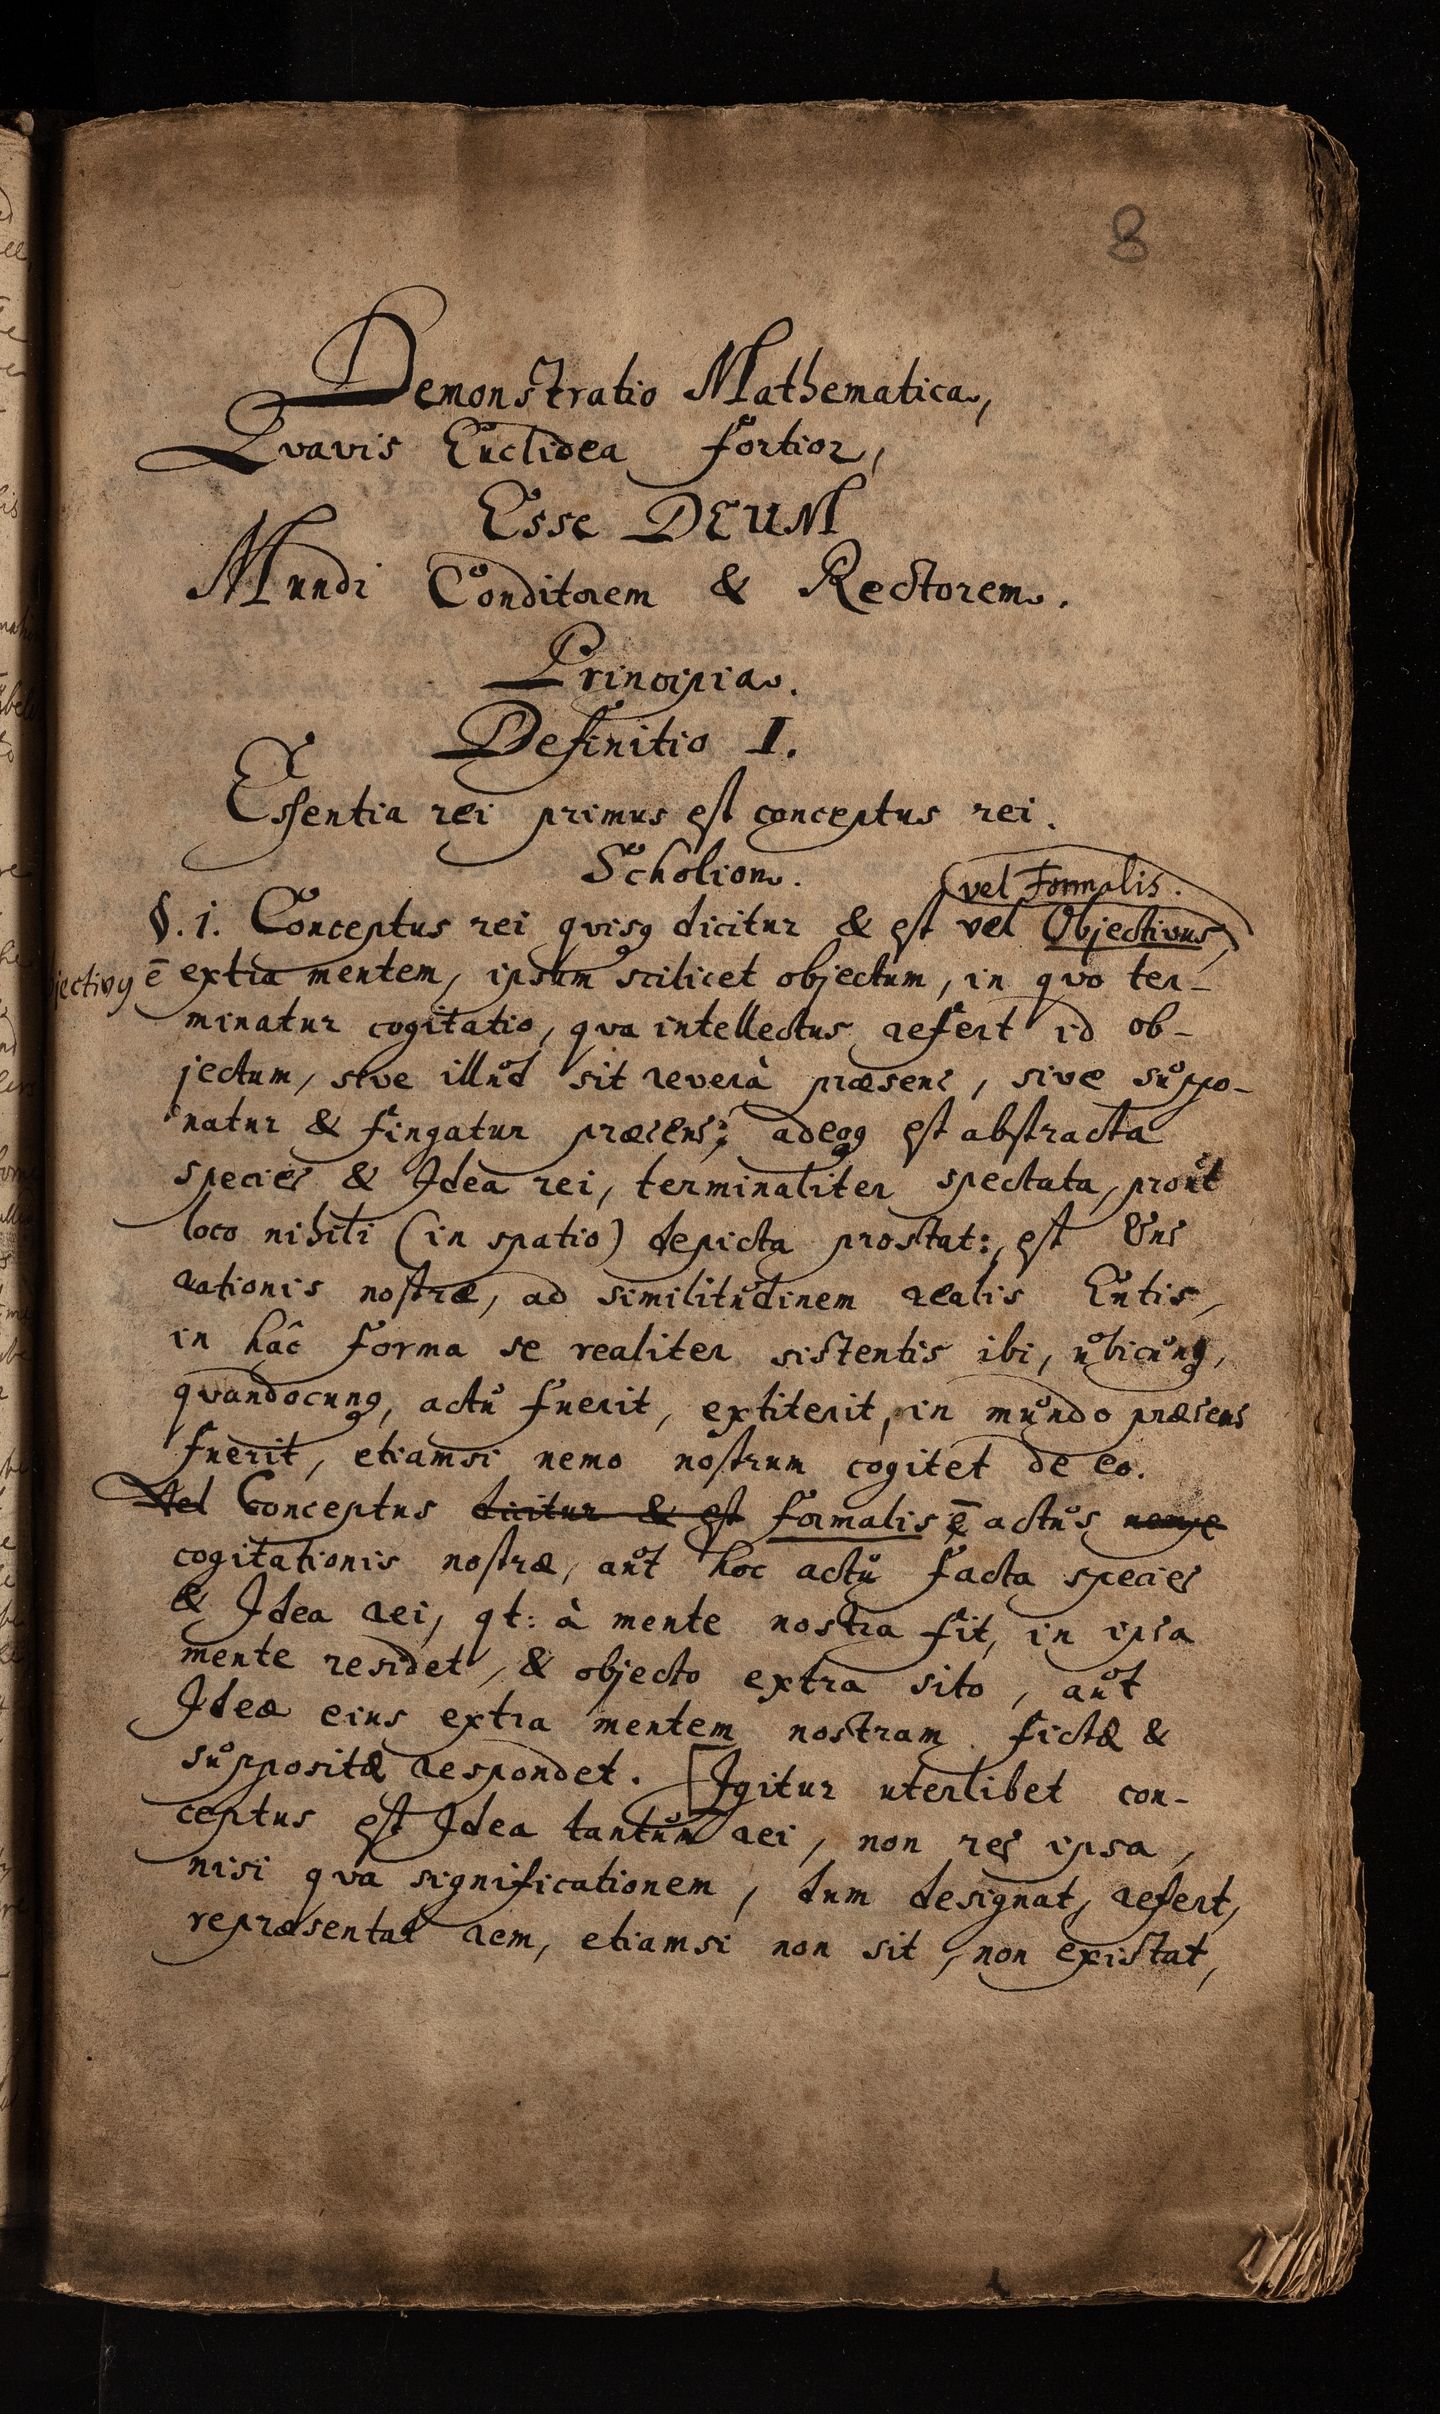 8
Demonstratio Mathematica,
Qvavis Euclidea fortior,
Esse DEUM
Mundi Conditorem & Rectorem.
Principia.
Definitio I.
Essentia rei primus est conceptus rei.
Scholion.
vel Formalis.
§. 1. Conceptus rei qvisq dicitur & est vel Objectivus,
jectivq ē extra mentem, ipsum scilicet objectum, in qvo ter-
minatur cogitatio, qva intellectus refert id ob-
jectum, sive illud sit reverà præsens, sive suppo-
natur & fingatur præsens; adeoq est abstracta
species & Idea rei, terminaliter spectata, prout
loco nihili (in spatio) depicta prostat:, est Ens
rationis nostræ, ad similitudinem realis Entis,
in hâc forma se realiter sistentis ibi, ubicunq,
qvandocunq, actu fuerit, extiterit, in mundo præsens
fuerit, etiamsi nemo nostrum cogitet de eo.
Vel Conceptus dicitur & est formalis ē actus nempe
cogitationis nostræ, aut hoc actu facta species
& Idea rei, qt: à mente nostra fit, in ipsa
mente residet, & objecto extra sito, aut
Ideæ eius extra mentem nostram fictæ &
suppositæ respondet. [Igitur uterlibet con-
ceptus est Idea tantum rei, non res ipsa,
nisi qva significationem, dum designat, refert,
repræsentat rem, etiamsi non sit, non existat,